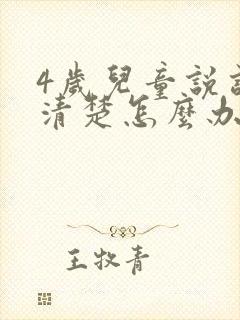 4歲兒童說
清楚怎麼办
王牧青